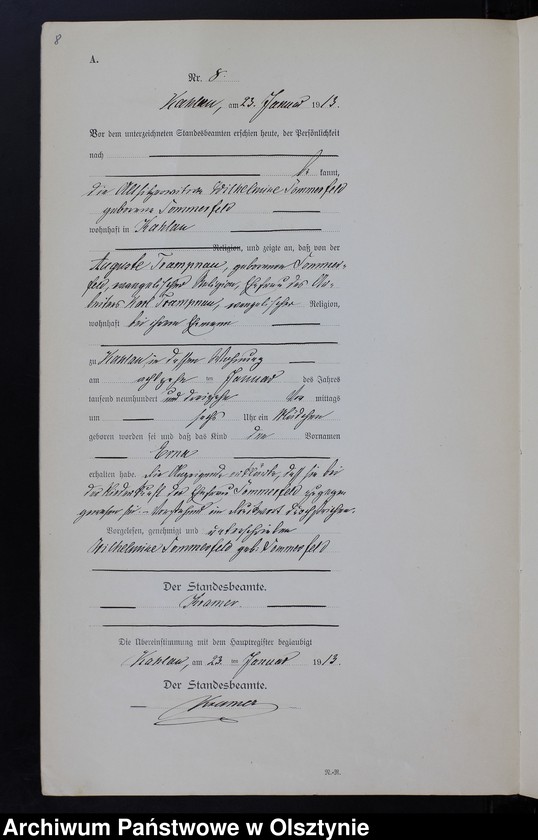 8
A.
Nr. 8.
Kahlau, am 23. Januar 1913.
Vor dem unterzeichneten Standesbeamten erschien heute, der Persönlichkeit
nach
be kannt,
die Altsitzerwitwe Wilhelmine Sommerfeld
geborene Sommerfeld
wohnhaft in Kahlau
Religion, und zeigte an, daß von der
Auguste Trampnau, geborenen Sommer-
feld, evangelischer Religion, Ehefrau des Ar-
beiters Karl Trampnau, evangelischer Religion,
wohnhaft bei ihrem Ehemann
zu Kahlau, in dessen Wohnung
am achtzehn ten Januar des Jahres
tausend neunhundert und dreizehn Vor mittags
um sechs Uhr ein Mädchen
geboren worden sei und daß das Kind den Vornamen
Erna
erhalten habe. Die Anzeigende erklärte, daß sie bei
der Niederkunft der Ehefrau Sommerfeld zugegen
gewesen sei. – Vorstehend ein Druckwort durchstrichen.
Vorgelesen, genehmigt und unterschrieben
Wilhelmine Sommerfeld geb. Sommerfeld
Der Standesbeamte.
Kramer.
Die Übereinstimmung mit dem Hauptregister beglaubigt
Kahlau, am 23. ten Januar 1913.
Der Standesbeamte.
Kramer
N.-R.
Archiwum Państwowe w Olsztynie